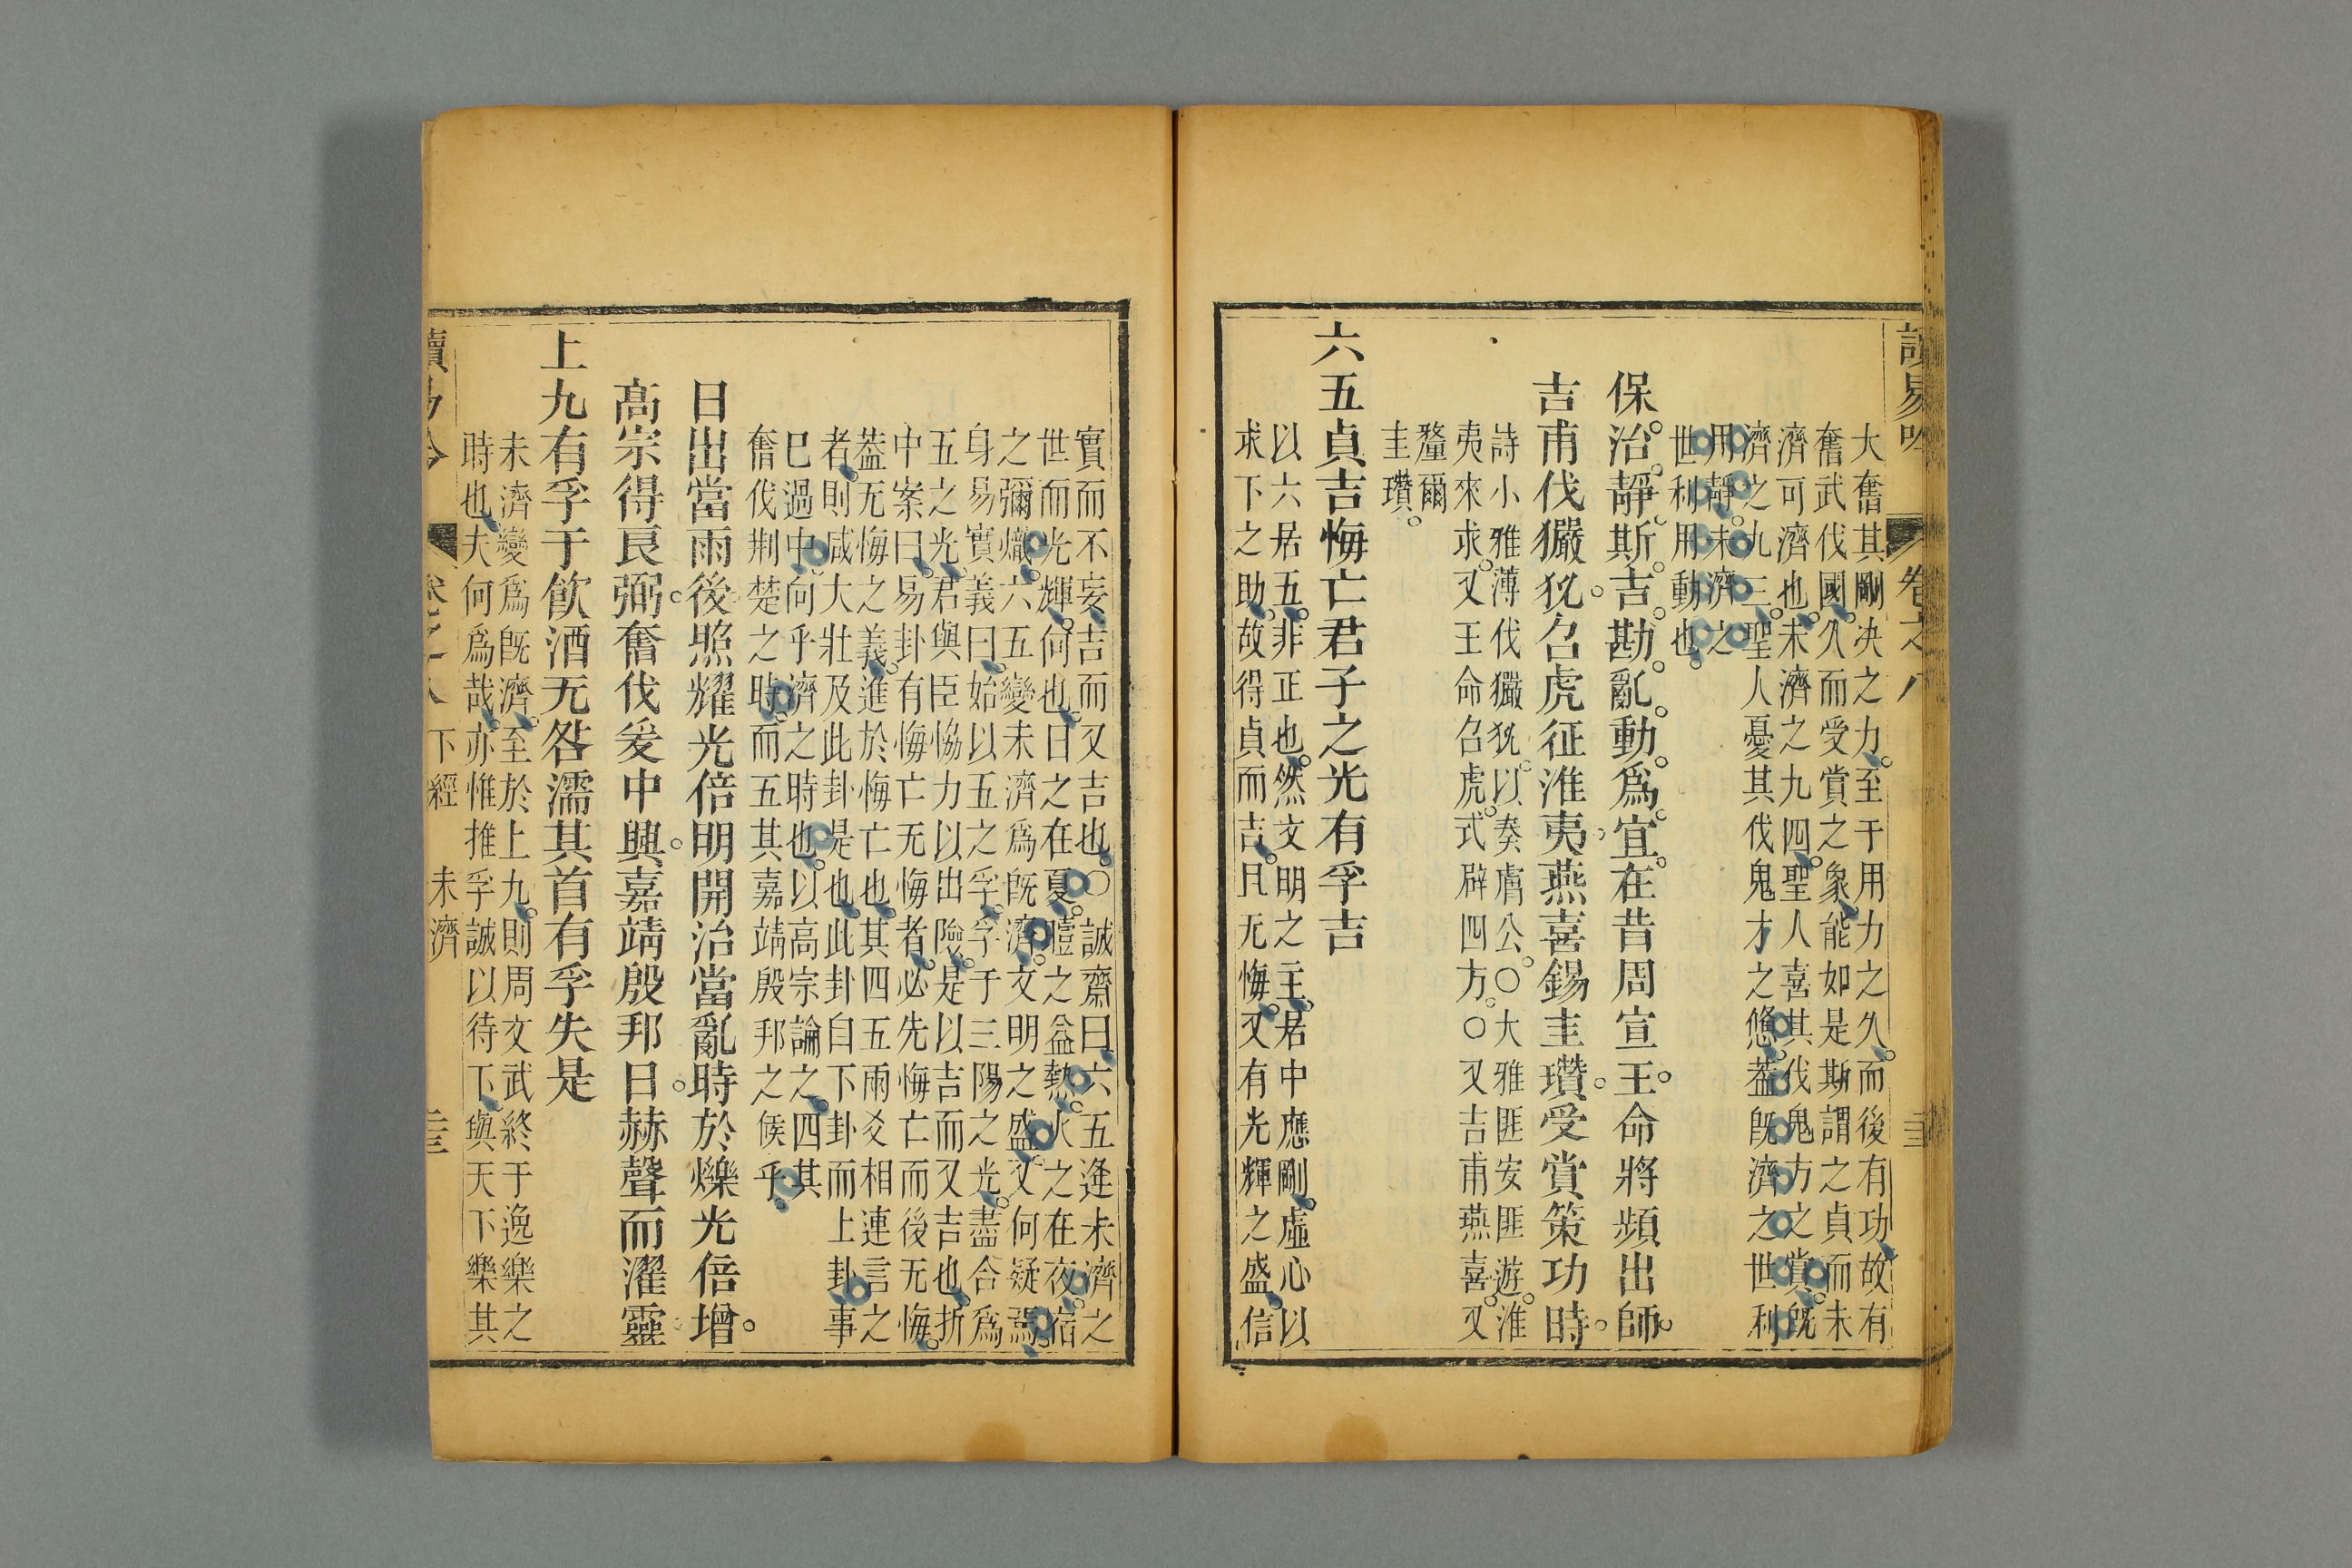 讀易吟 卷之八
大奮其剛決之力至于用力之久而後有功故有
奮武伐國久而受賞之象能如是斯謂之貞而未
濟可濟也未濟之九四聖人喜其伐鬼方之賞旣
濟之九三聖人憂其伐鬼才之憊葢旣濟之世利
用靜未濟之
世利用動也
保治靜斯吉勘亂動爲宜在昔周宣王命將頻出師
吉甫伐玁狁召虎征淮夷燕喜錫圭瓚受賞策功時
詩小雅薄伐玁狁以奏膚公〇大雅匪安匪遊淮
夷來求又王命召虎式辟四方〇又吉甫燕喜又
釐爾
圭瓚
六五貞吉悔亡君子之光有孚吉
以六居五非正也然文明之主居中應剛虛心以
求下之助故得貞而吉且无悔又有光輝之盛信
實而不妄吉而又吉也〇誠齋曰六五逢未濟之
世而光輝何也日之在夏曀之益熱火之在夜宿
之彌熾六五變未濟爲旣濟文明之盛又何疑焉
身易實義曰始以五之孚孚于三陽之光盡合爲
五之光君與臣恊力以出險是以吉而又吉也折
中案曰易卦有悔亡无悔者必先悔亡而後无悔
葢无悔之義進於悔亡也其四五兩爻相連言之
者則咸大壯及此卦是也此卦自下卦而上卦事
已過中向乎濟之時也以高宗論之四其
奮伐荆楚之時而五其嘉靖殷邦之候乎
日出當雨後照耀光倍明開治當亂時於爍光倍增
高宗得良弼奮伐爰中興嘉靖殷邦日赫聲而濯靈
上九有孚于飮酒无咎濡其首有孚失是
未濟變爲旣濟至於上九則周文武終于逸樂之
時也夫何爲哉亦惟推孚誠以待下與天下樂其
讀易吟 卷之八 下經 未濟